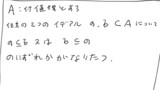 A：付値環とする
任意の2つのイデアル a, b ⊂ A について
a ⊆ b 又は b ⊆ a
のいずれかがなりたつ.